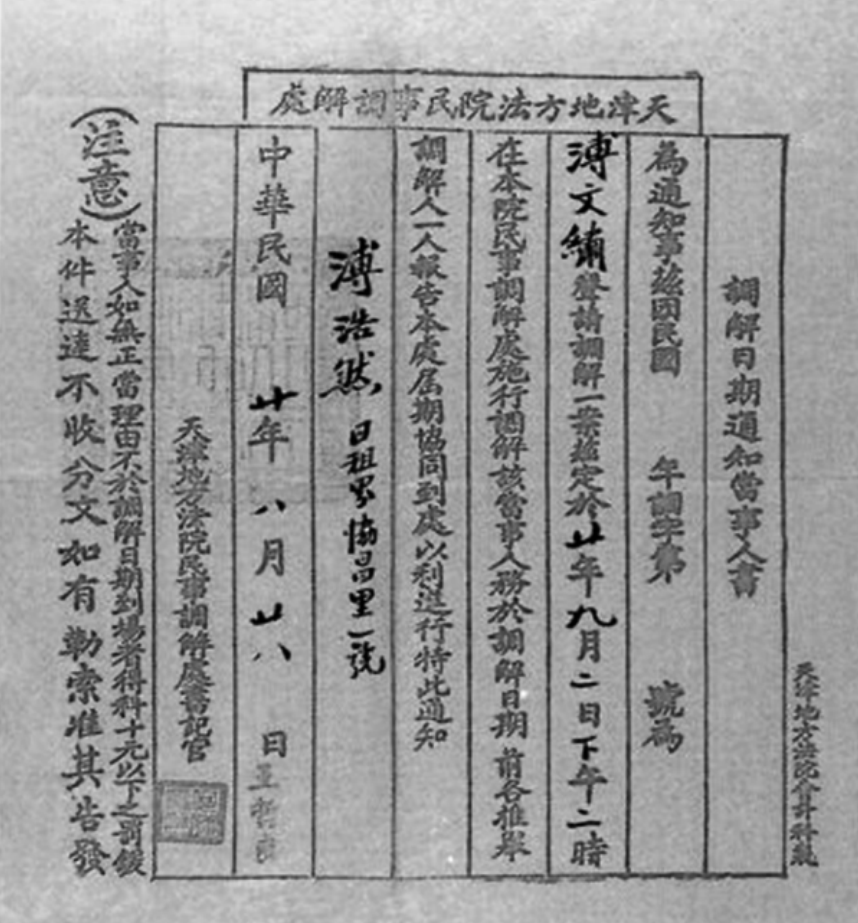 天津地方法院民事調解處
天津地方法院會計科製
調解日期通知當事人書
為通知事茲因民國 年調字第 號為
溥文繡聲請調解一案茲定於廿年九月二日下午二時
在本院民事調解處施行調解該當事人務於調解日期前各推舉
調解人一人報告本處屆期協同到處以利進行特此通知
溥浩然 日租界協昌里一號
中華民國 廿年 八月 廿八 日
天津地方法院民事調解處書記官
(注意)
當事人如無正當理由不於調解日期到場者得科十元以下之罰鍰
本件送達不收分文如有勒索准其告發